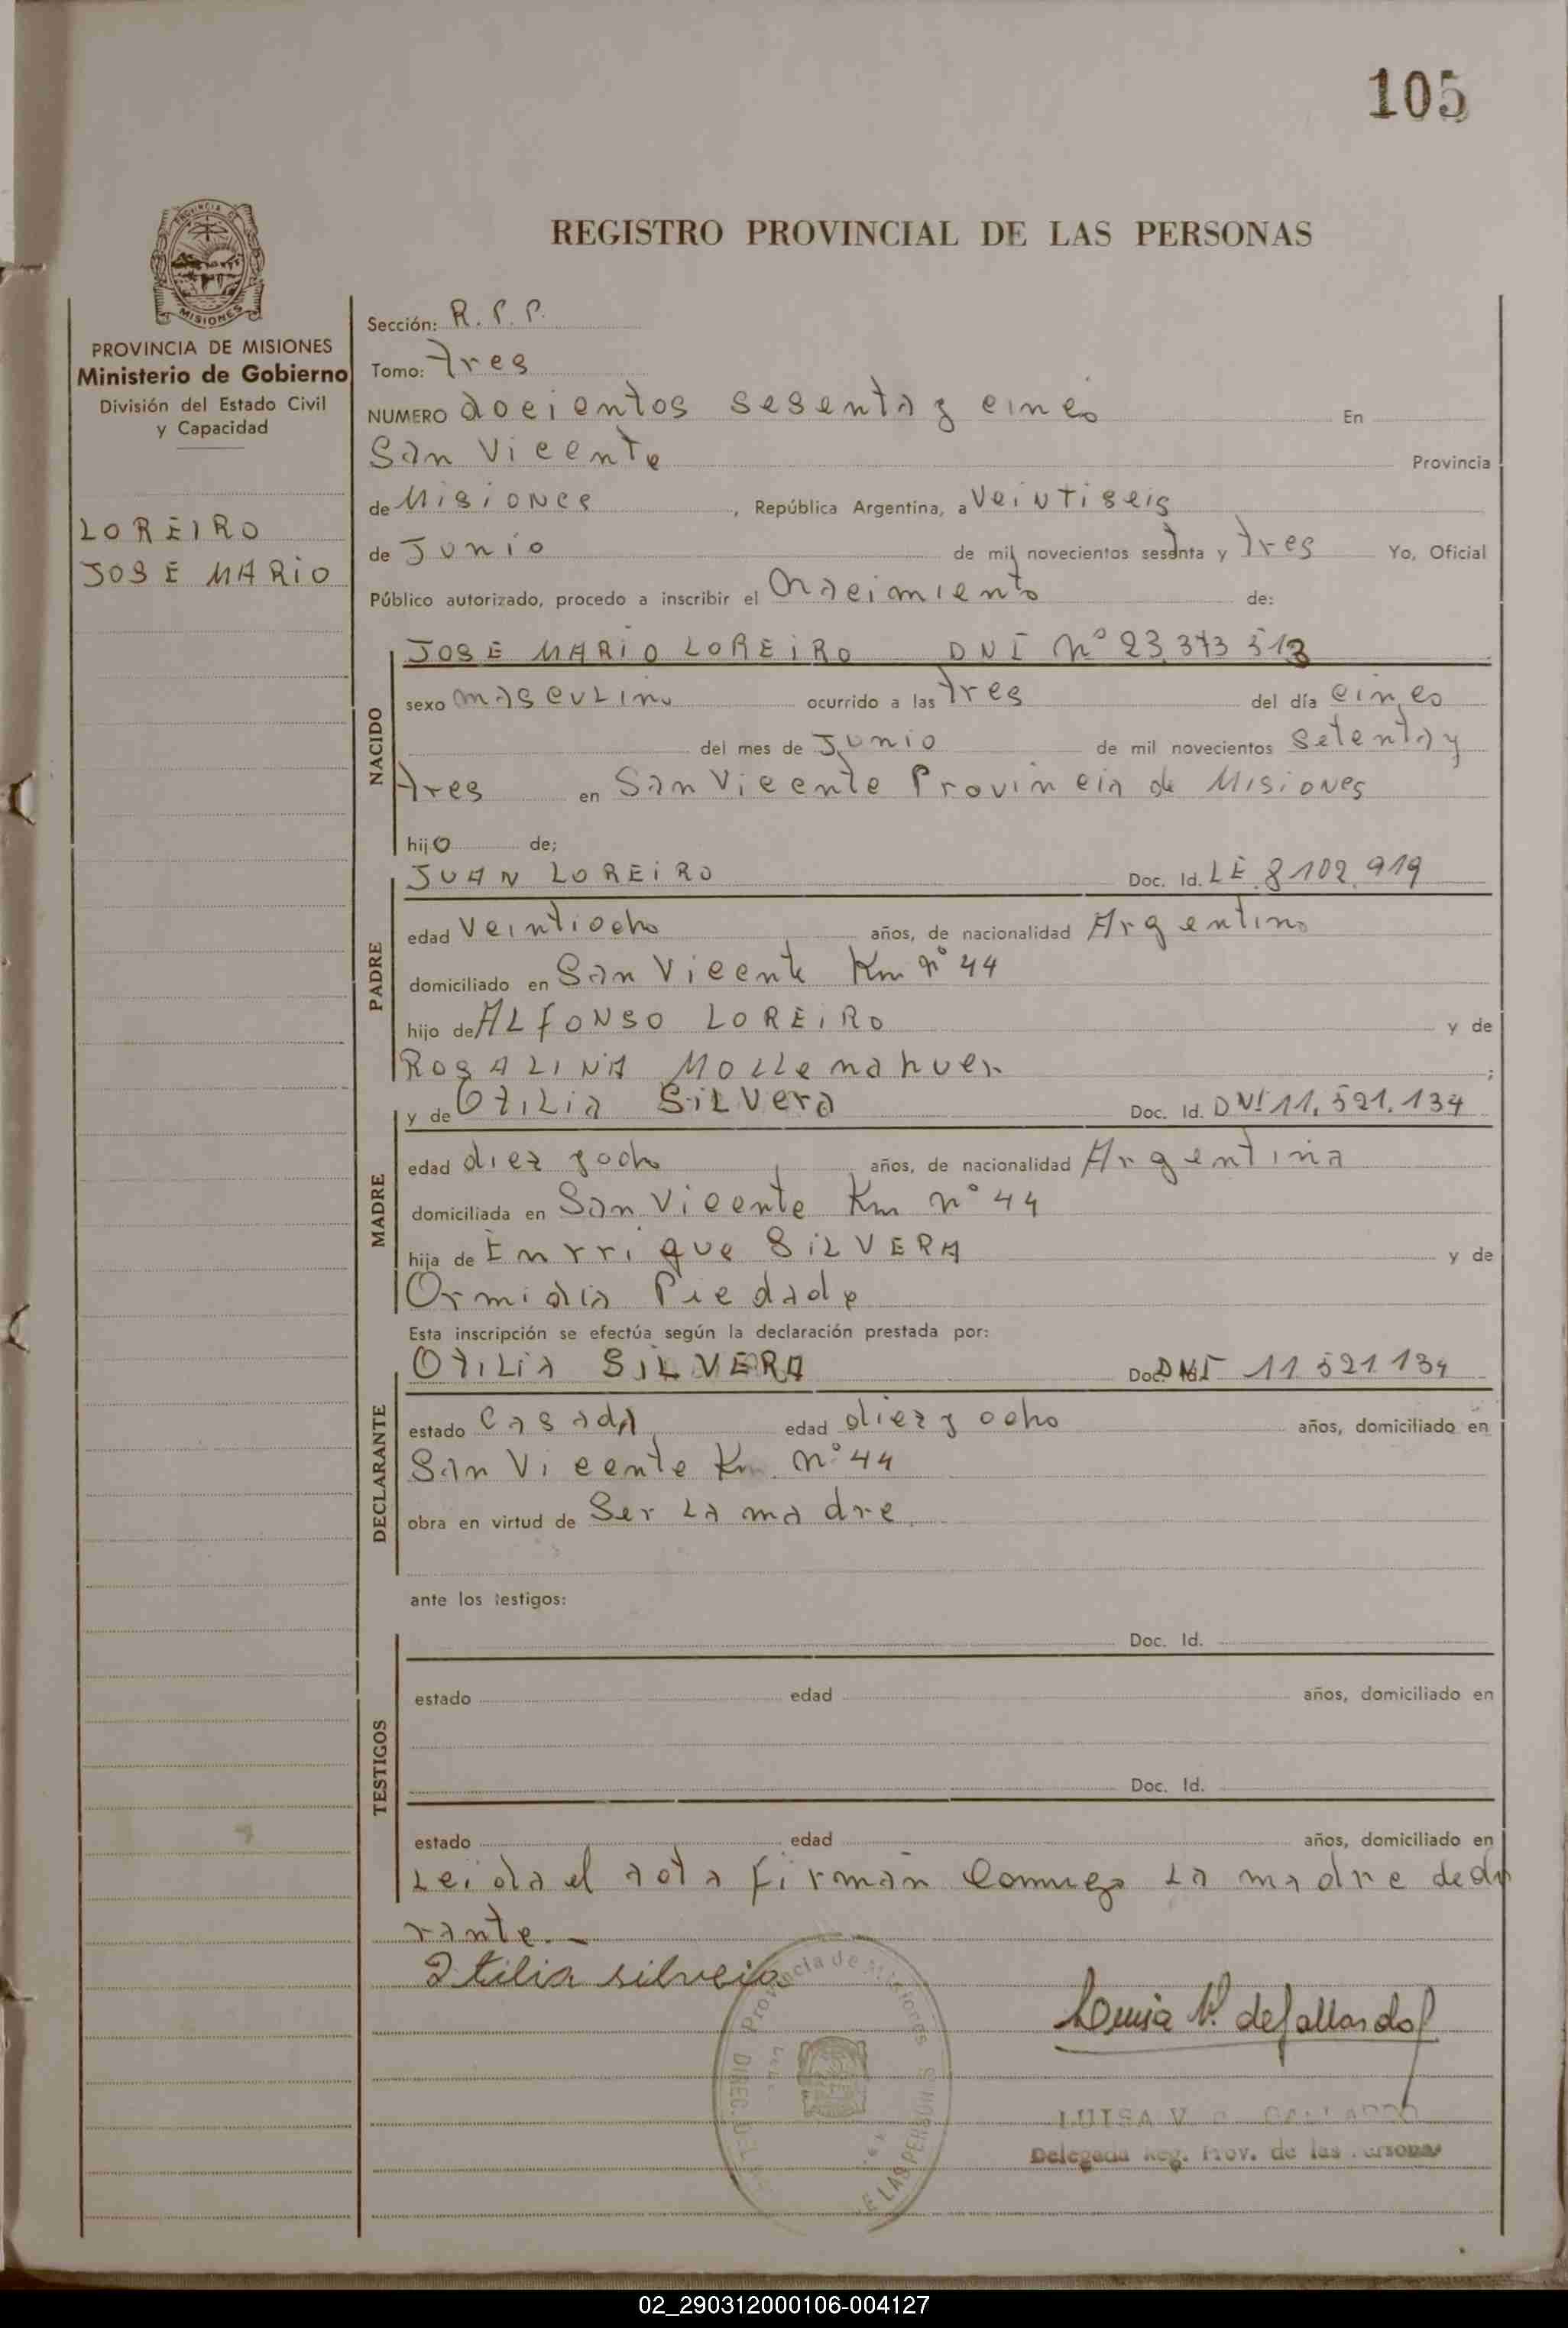 105
REGISTRO PROVINCIAL DE LAS PERSONAS
PROVINCIA DE
MISIONES
PROVINCIA DE MISIONES
Ministerio de Gobierno
División del Estado Civil
y Capacidad
LOREIRO
JOSE MARIO
Sección: R.P.P.
Tomo: tres
NUMERO docientos sesenta y cinco En
San Vicente Provincia
de Misiones, República Argentina, a veintiseis
de Junio de mil novecientos sesenta y tres Yo, Oficial
Público autorizado, procedo a inscribir el nacimiento de:
NACIDO
JOSE MARIO LOREIRO DNI Nº 23.373.513
sexo masculino ocurrido a las tres del día cinco
del mes de Junio de mil novecientos setenta y
tres en San Vicente Provincia de Misiones
hijo de;
PADRE
JUAN LOREIRO Doc. Id. LE 8.102.919
edad veintiocho años, de nacionalidad Argentino
domiciliado en San Vicente Km nº 44
hijo de ALFONSO LOREIRO y de
ROSALINA ;
MADRE
y de Otilia SILVERA Doc. Id. DNI 11.521.134
edad diez y ocho años, de nacionalidad Argentina
domiciliada en San Vicente Km nº 44
hija de Enrrique SILVERA y de
Ormidia Piedade
Esta inscripción se efectúa según la declaración prestada por:
DECLARANTE
OTILIA SILVERA Doc. DNI 11.521.134
estado casada edad diez y ocho años, domiciliado en
San Vicente Km nº 44
obra en virtud de Ser la madre
ante los testigos:
TESTIGOS
Doc. Id.
estado edad años, domiciliado en
Doc. Id.
estado edad años, domiciliado en
Leida el acta firman conmigo la madre decla
rante.-
Otilia silveia
Luisa V. de Gallardo
Provincia de Misiones
DIREC.
DE LAS PERSONAS
LUISA V. GALLARDO
Delegada Reg. Prov. de las Personas
02_290312000106-004127